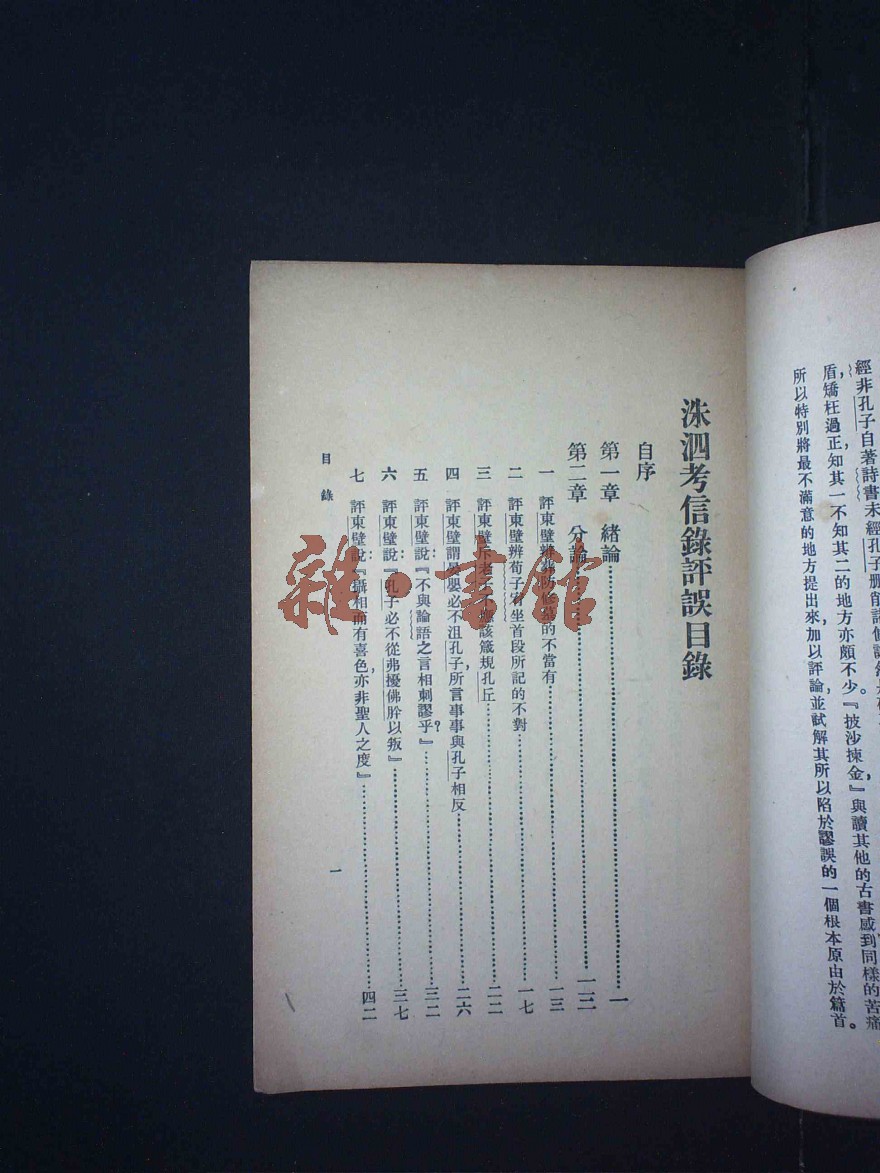 經非孔子自著詩書未經孔子刪削諸
盾,矯枉過正,知其一不知其二的地方亦頗不少。『披沙揀金』,與讀其他的古書感到同樣的苦痛
所以特別將最不滿意的地方提出來,加以評論,並試解其所以陷於謬誤的一個根本原由於篇首。
洙泗考信錄評誤目錄
自序
第一章 緒論…一
第二章 分論…一二
一 評東壁辨防墓的不當有…一三
二 評東壁辨荀子宥坐首段所記的不對…一七
三 評東壁斥老子不應該箴規孔丘…二二
四 評東壁謂晏嬰必不沮孔子所言事事與孔子相反…二六
五 評東壁說:『不與論語之言相刺謬乎?』…三二
六 評東壁說:『孔子必不從弗擾佛肸以叛』…三七
七 評東壁說:『攝相而有喜色,亦非聖人之度』…四二
目錄
一
雜·書館